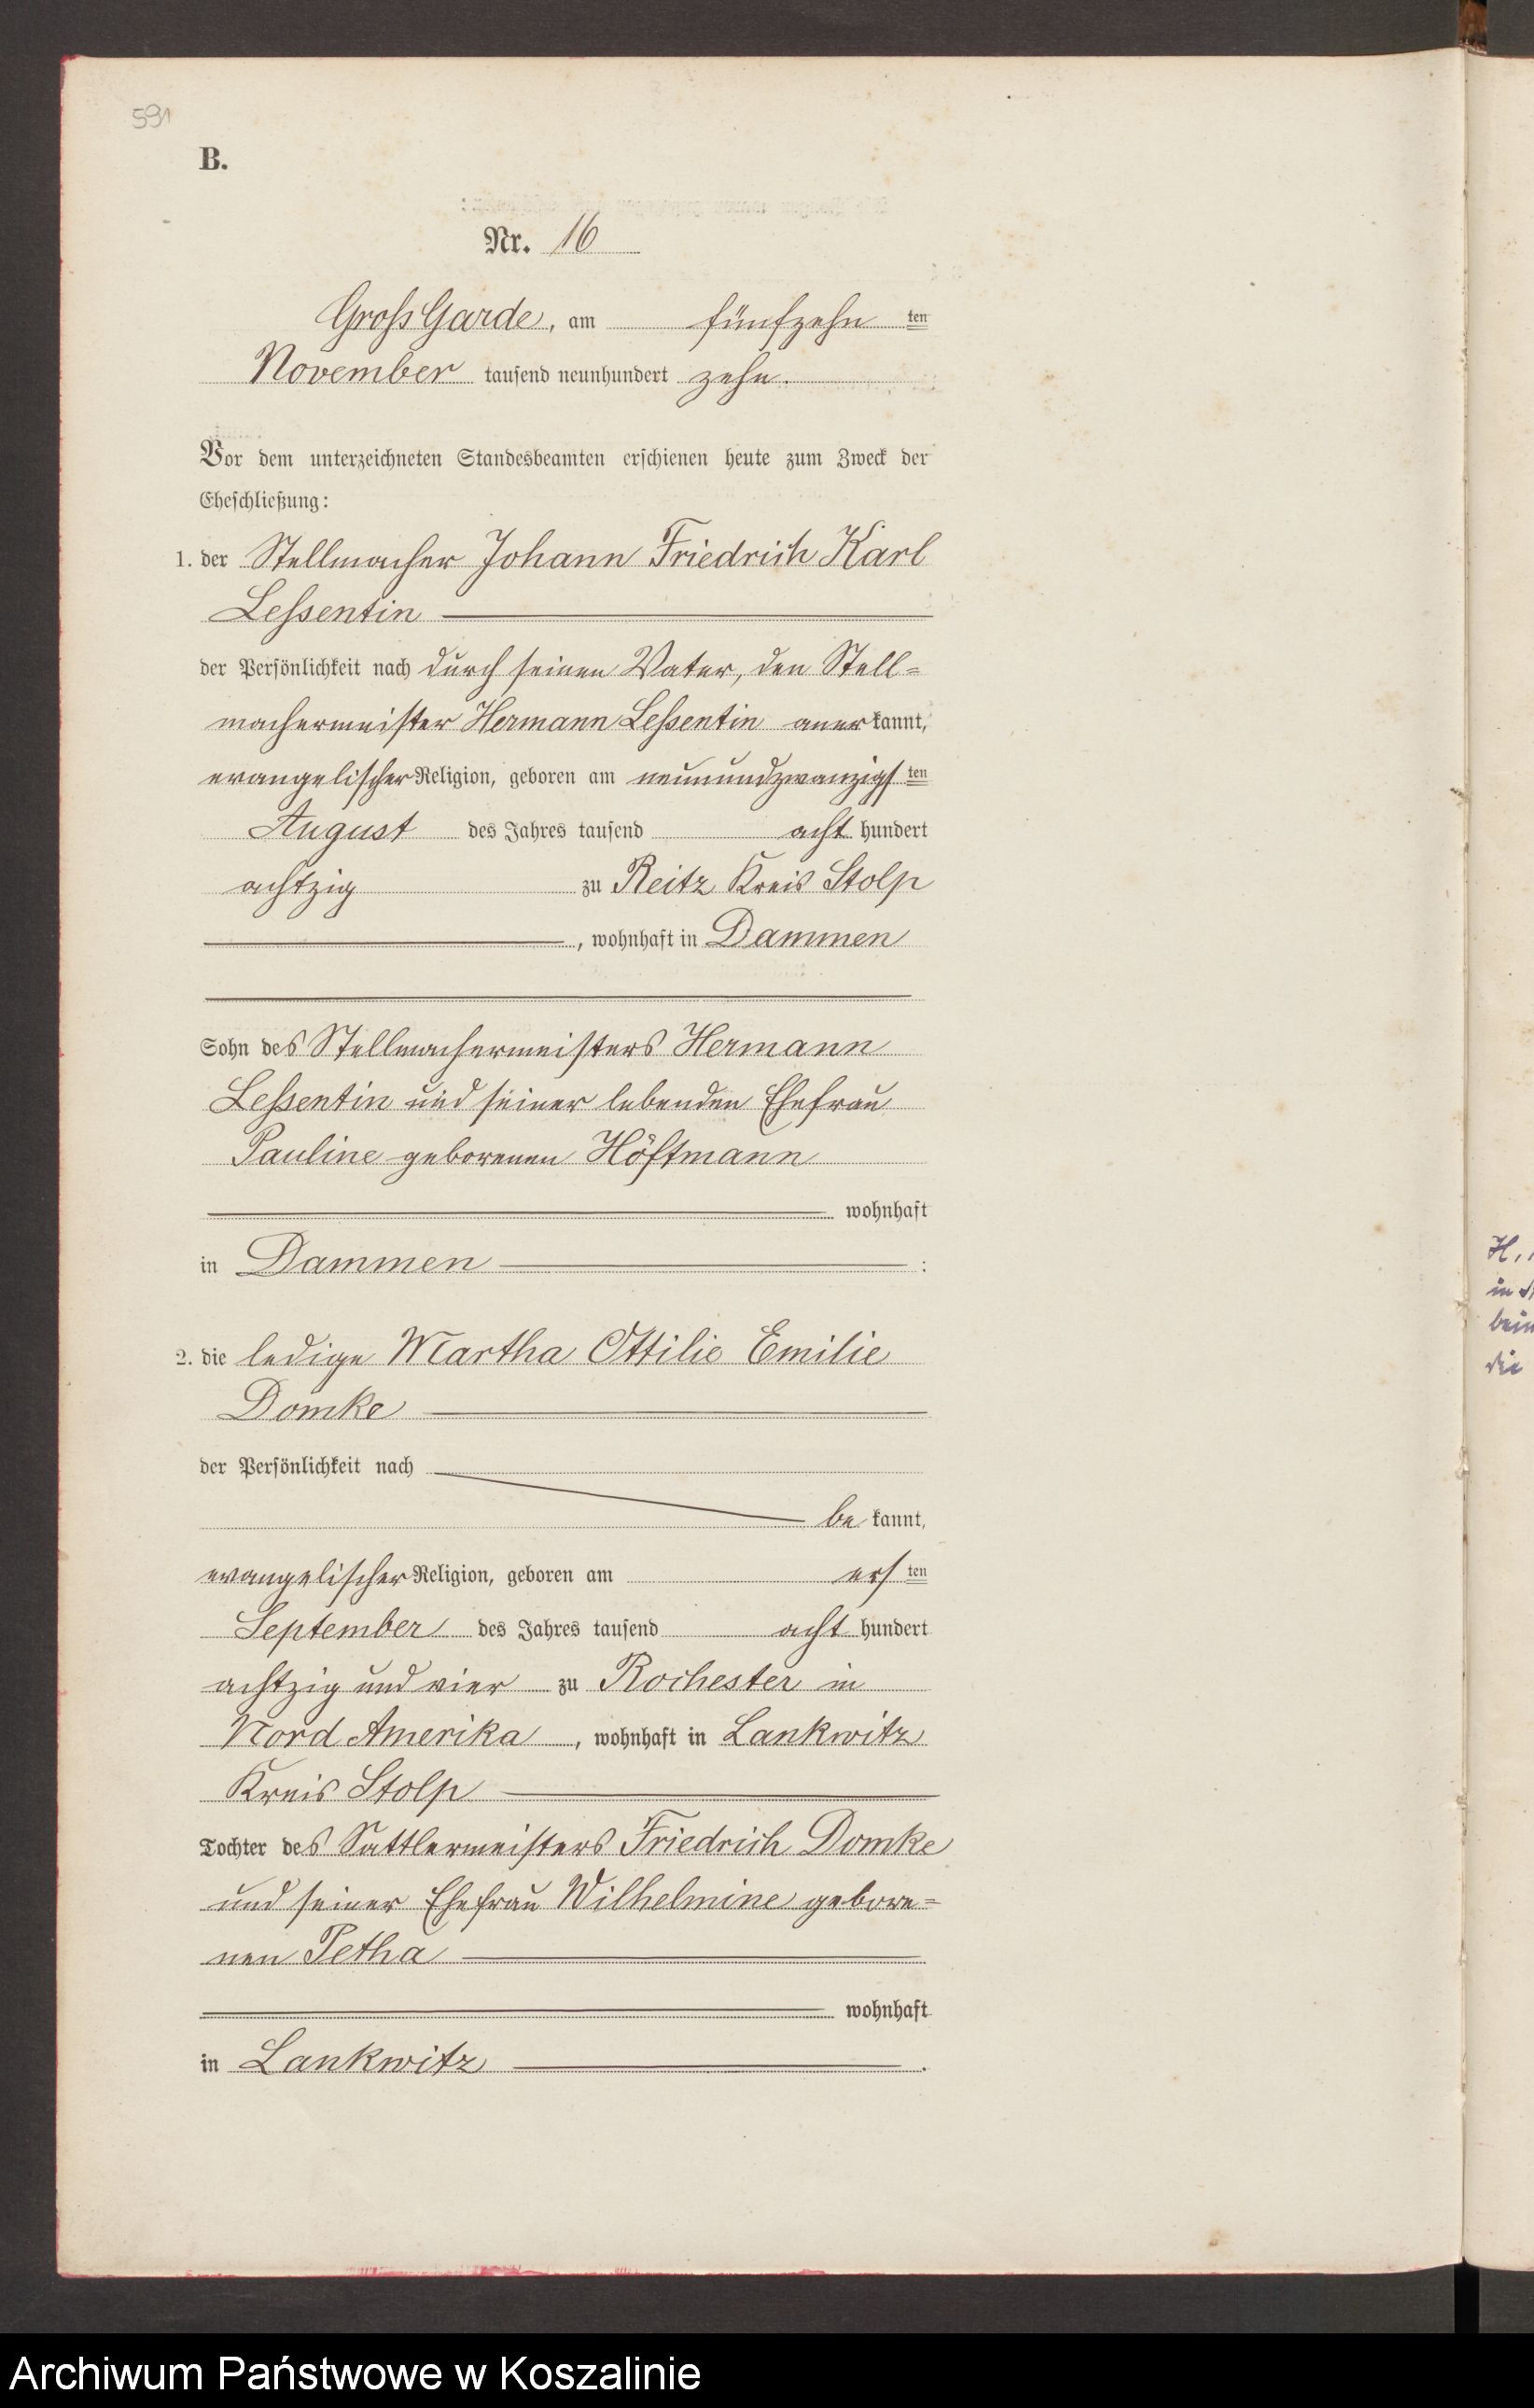 591
B.
Nr. 16
Groß Garde, am fünfzehn ten
November tausend neunhundert zehn.
Vor dem unterzeichneten Standesbeamten erschienen heute zum Zweck der
Eheschließung:
1. der Stellmacher Johann Friedrich Karl
Leßentin
der Persönlichkeit nach durch seinen Vater, den Stell=
machermeister Hermann Leßentin anerkannt,
evangelischer Religion, geboren am neunundzwanzigsten
August des Jahres tausend acht hundert
achtzig zu Reitz Kreis Stolp
, wohnhaft in Dammen
Sohn des Stellmachermeisters Hermann
Leßentin und seiner lebenden Ehefrau
Pauline geborenen Höftmann
wohnhaft
in Dammen :
2. die ledige Martha Ottilie Emilie
Domke
der Persönlichkeit nach
be kannt,
evangelischer Religion, geboren am ersten
September des Jahres tausend acht hundert
achtzig und vier zu Rochester in
Nord Amerika, wohnhaft in Lankwitz
Kreis Stolp
Tochter des Sattlermeisters Friedrich Domke
und seiner Ehefrau Wilhelmine gebore=
nen Petha
wohnhaft
in Lankwitz .
H.
in
die
Archiwum Państwowe w Koszalinie